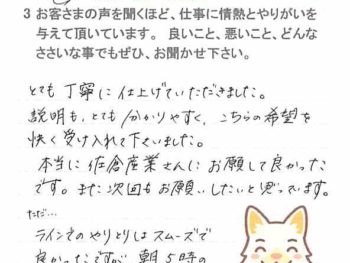 3 お客さまの声を聞くほど、仕事に情熱とやりがいを
与えて頂いています。 良いこと、悪いこと、どんな
ささいな事でもぜひ、お聞かせ下さい。
とても丁寧に仕上げていただきました。
説明も、とても分かりやすく、こちらの希望を
快く受け入れて下さいました。
本当に佐倉産業さんにお願して良かった
です。また次回もお願いしたいと思っています。
ただ…
ラインでのやりとりはスムーズで
良かったですが、朝5時の